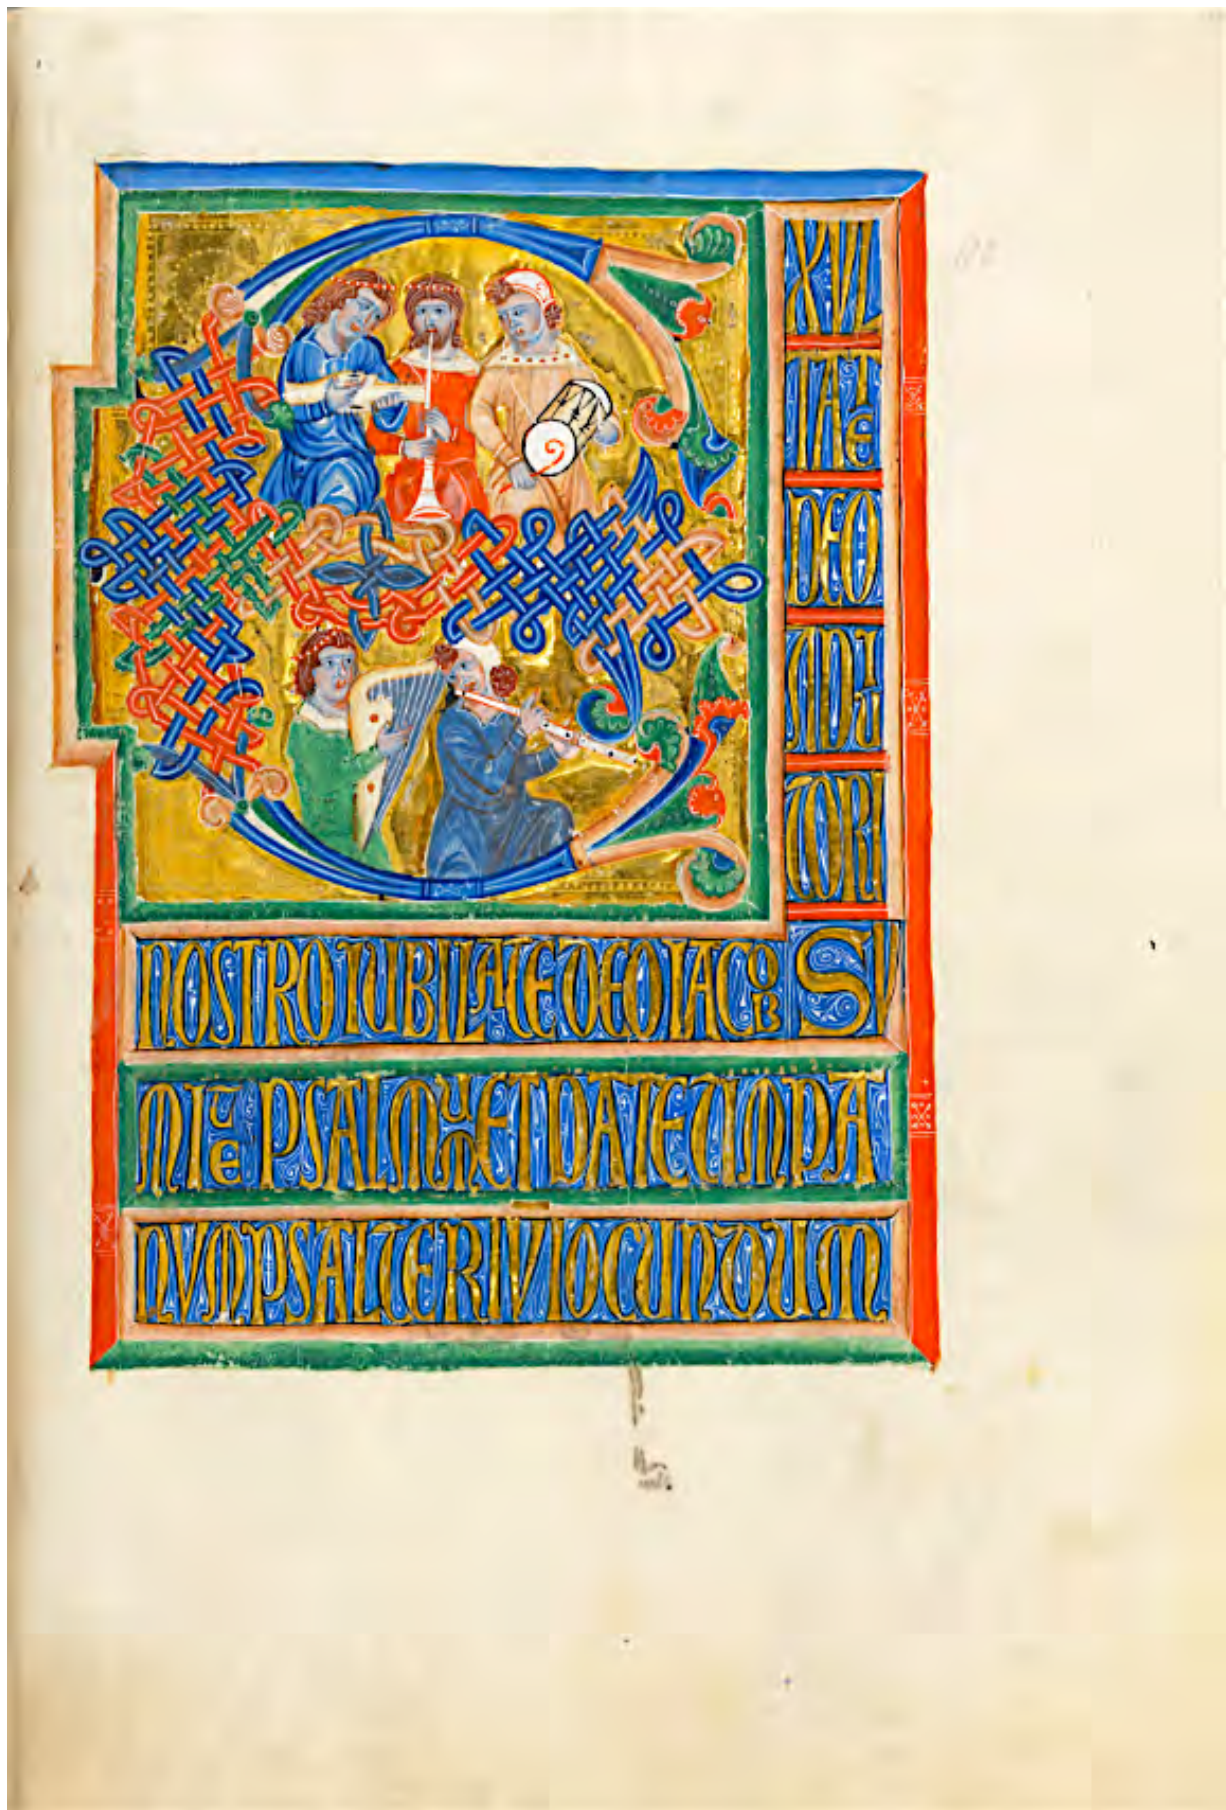 EXUL
TATE
DEO
ADIU
TORI
NOSTRO IUBILATE DEO IACOB SV
MITE PSALMUM ET DATE TIMPA
NVM PSALTERIV IOCUNDUM